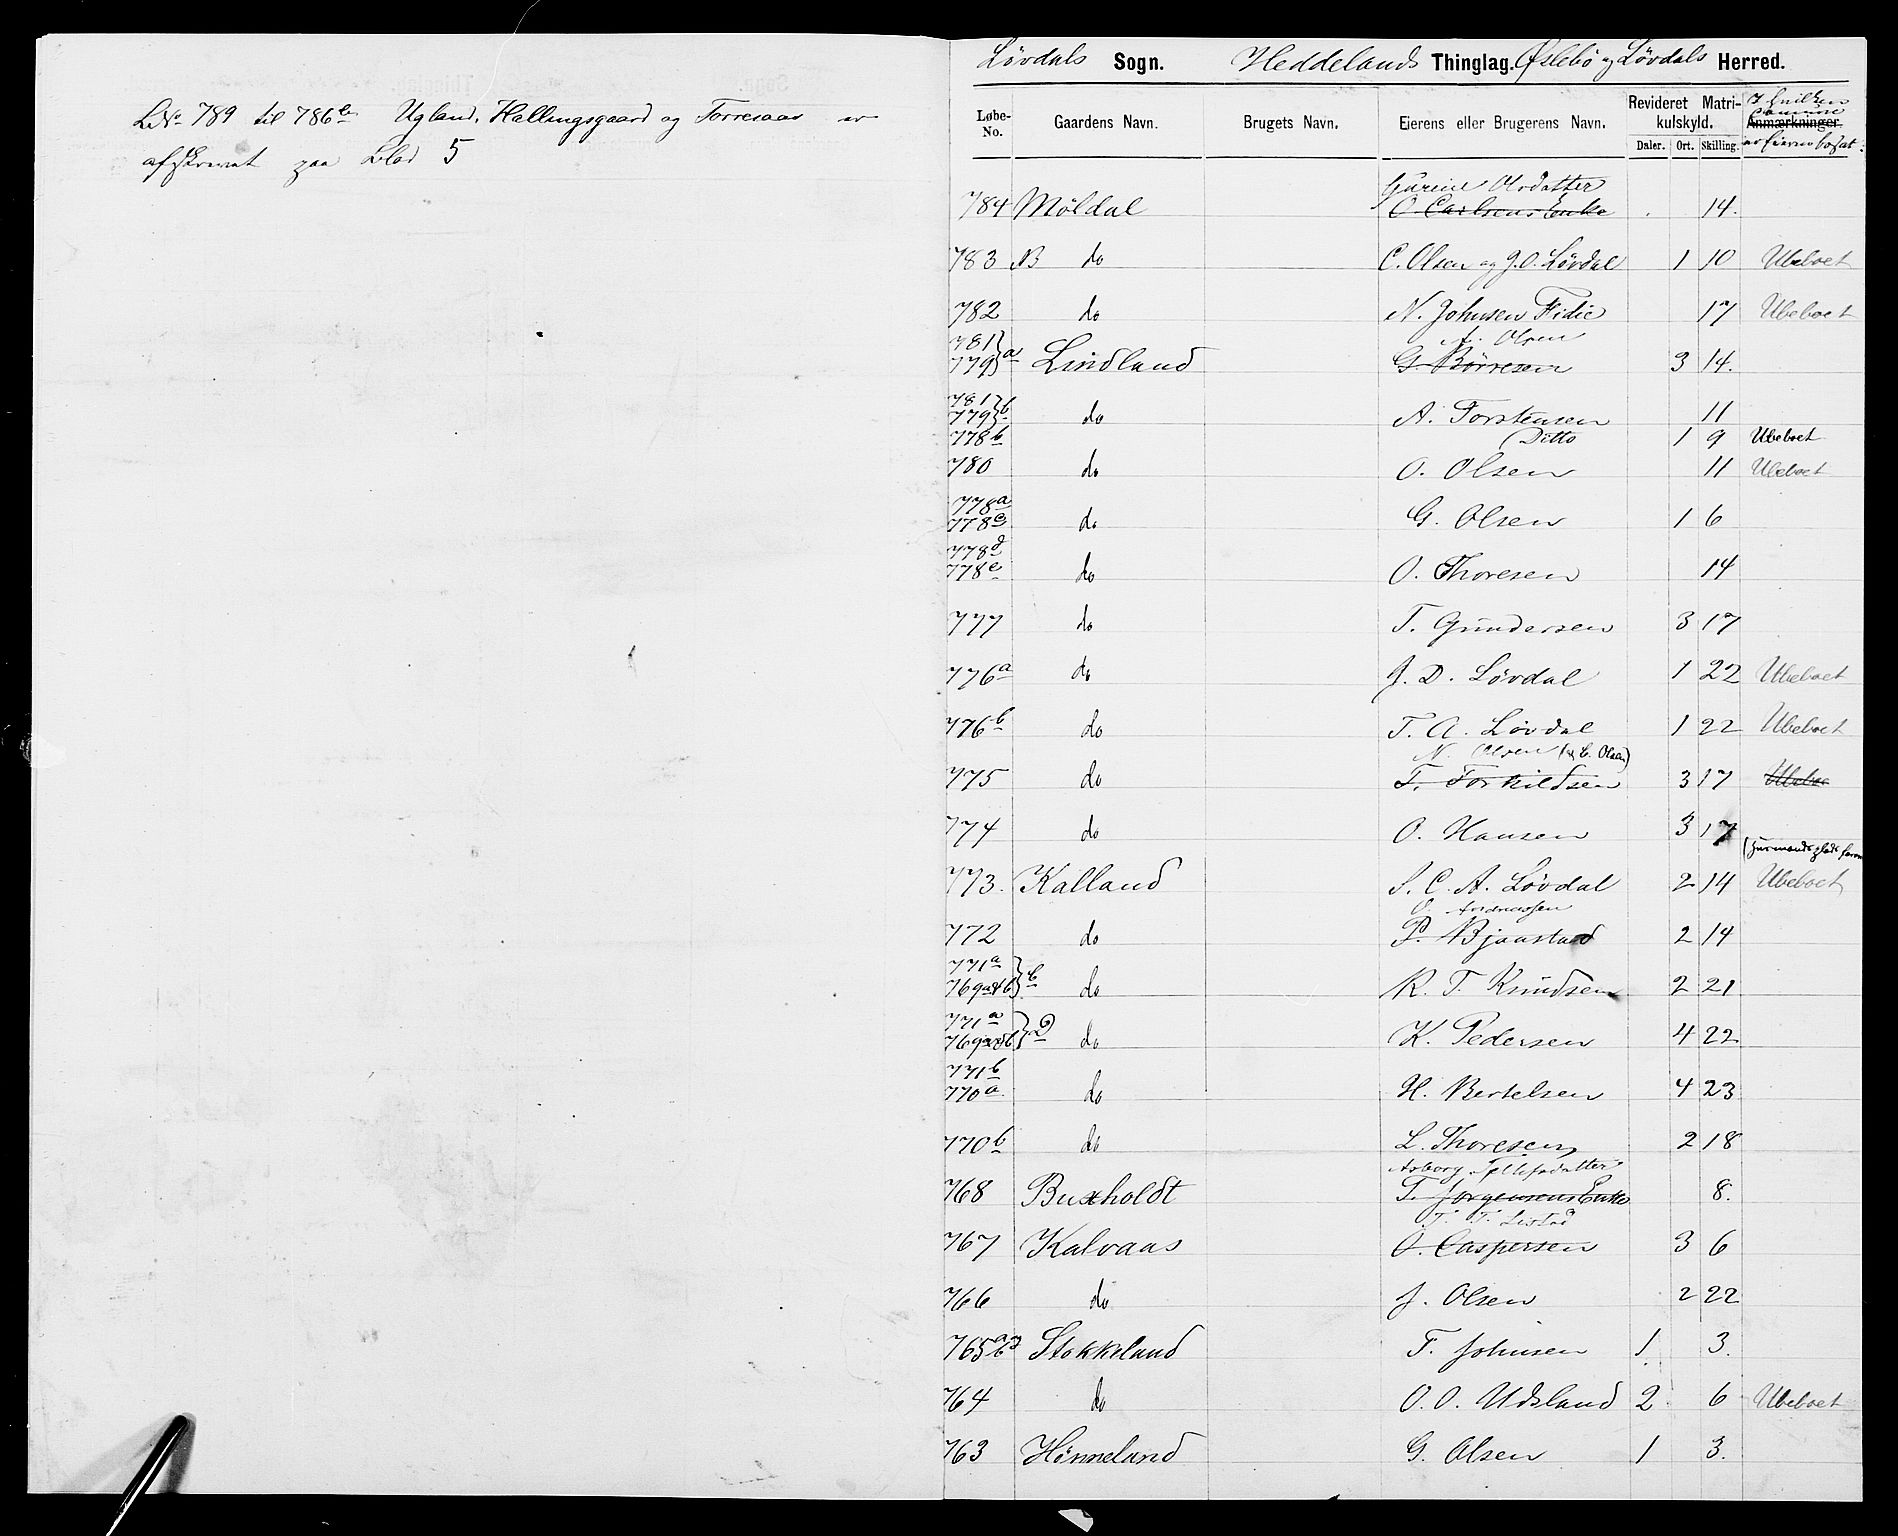 L.No 789 til 786b Ugland, Hallingsgaard og Torresaas er
afskrevet paa Blad 5
Lövdals Sogn. Heddelands Thinglag. Øslebö og Lövdals Herred.
Løbe-No. Gaardens Navn. Brugets Navn. Eierens eller Brugerens Navn. Revideret Matrikulskyld. Daler. Ort. Skilling. I hvilken Anmærkninger. er Eieren bosat.
Gurine Olsdatter
784 Möldal O. Carlsens Enke 14.
783 B do C. Olsen og J. O. Lövdal 1 10 Ubeboet
782 do N. Johnsen Fidie 17 Ubeboet
781 Olsen
779 a Lindland G. Börresen 3 14.
781
779 b do A. Torstensen 11
778b Ditto 1 9 Ubeboet
780 do O. Olsen 11 Ubeboet
778a
778c do G. Olsen 1 6
778d
778e do O. Thoresen 14
777 do T. Gundersen 3 17
776a do J. D. Lövdal 1 22 Ubeboet
776b do T. A. Lövdal 1 22 Ubeboet
N. Olsen (og C. Olsen)
775 do T. Torkildsen 3 17 Ubeboe
774 do O. Hansen 3 17
(Husmandsplads
773. Kalland S. C. A. Lövdal 2 14 Ubeboet
O. Andreassen
772 do P. Bjaastad 2 14
771a
769a&b b do R. T. Knudsen 2 21
771a
769a&b a do K. Pedersen 4 22
771b
770a do H. Bertelsen 4 23
770b do L. Thoresen 2 18
Asborg Tellefsdatter
768 Buxholdt T. Jörgensens Enke 8.
T. T. Listad
767 Kalvaas O. Caspersen 3 6
766 do J. Olsen 2 22
765 ab Stokkeland F. Johnsen 1 3.
764 do O. O. Udsland 2 6 Ubeboet
763 Hönneland G. Olsen 1 3.